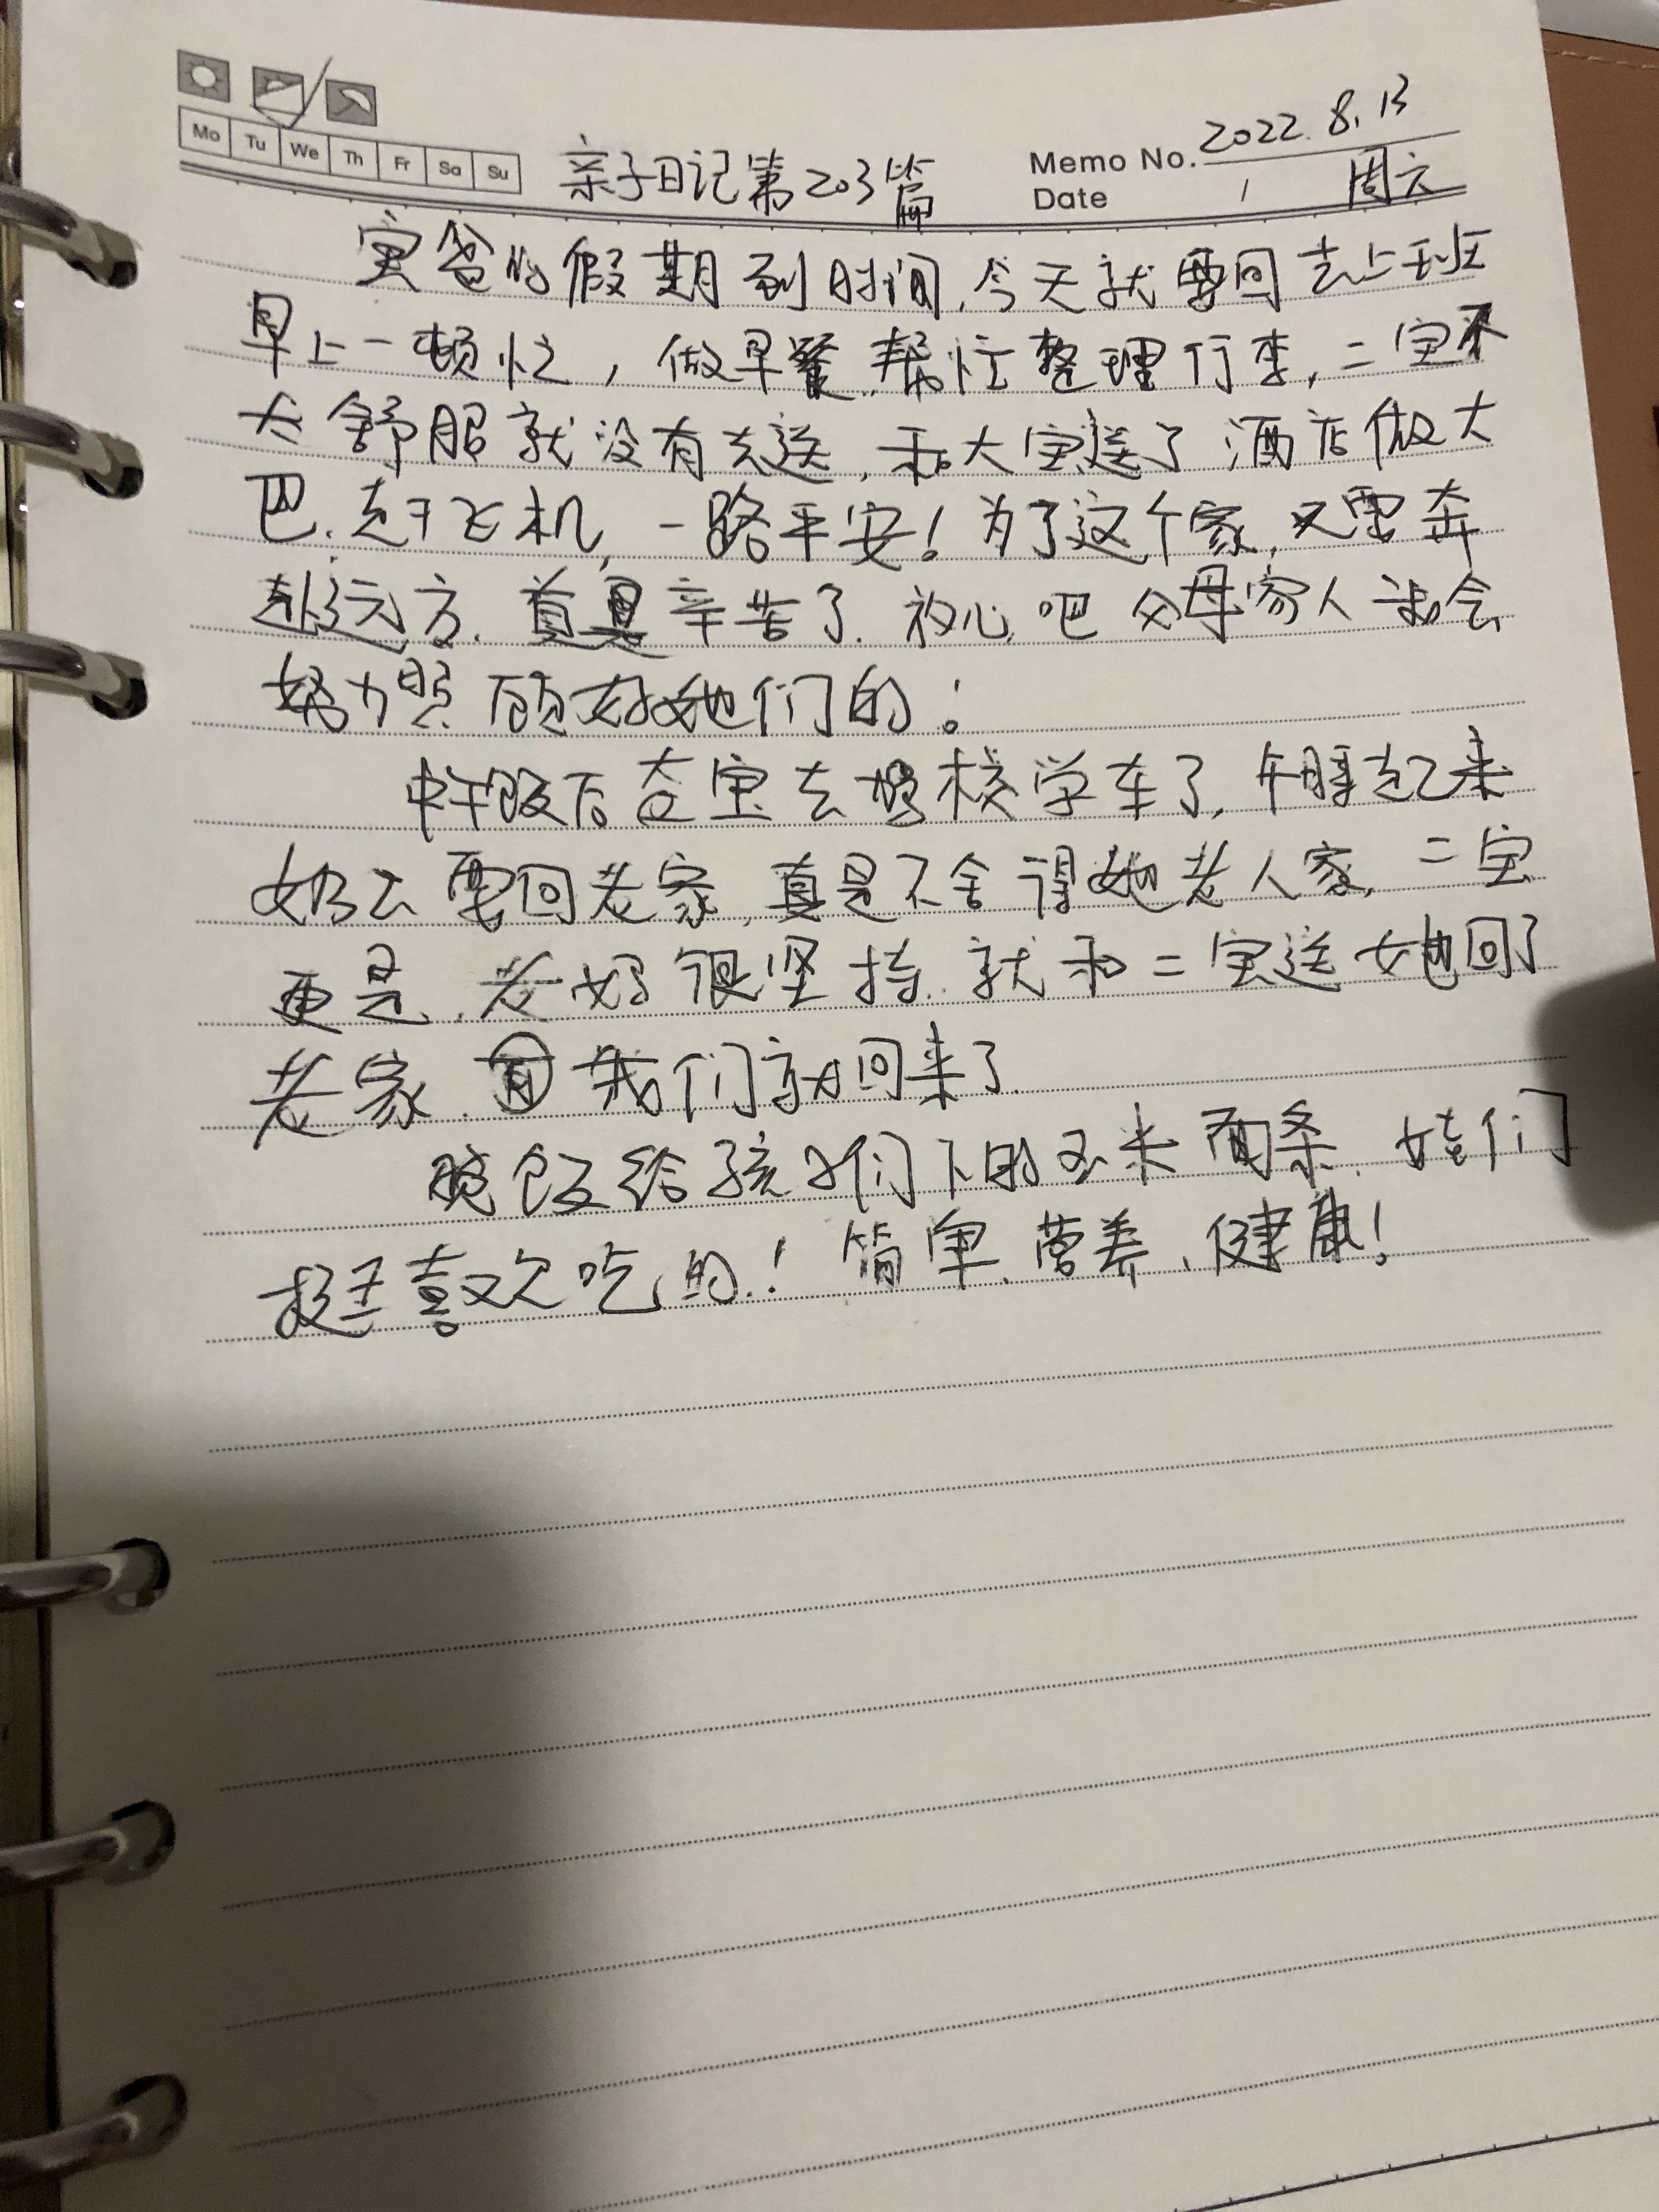 Mo Tu We Th Fr Sa Su
亲子日记第203篇
Memo No. 2022.8.13
Date / 周六
宝爸的假期到时间,今天就要回去上班
早上一顿忙,做早餐,帮忙整理行李,二宝不
太舒服就没有去送,和大宝送了酒店做大
巴.赶飞机,一路平安!为了这个家,又要奔
赴远方.真是辛苦了.放心吧父母家人我会
努力照顾好她们的!
中午饭后大宝去驾校学车了,午睡起来
奶么要回老家,真是不舍得她老人家,二宝
更是.老奶很坚持.就和二宝送她回了
老家.我们就回来了.
晚饭给孩子们下的玉米面条.娃们
挺喜欢吃的!简单、营养、健康!